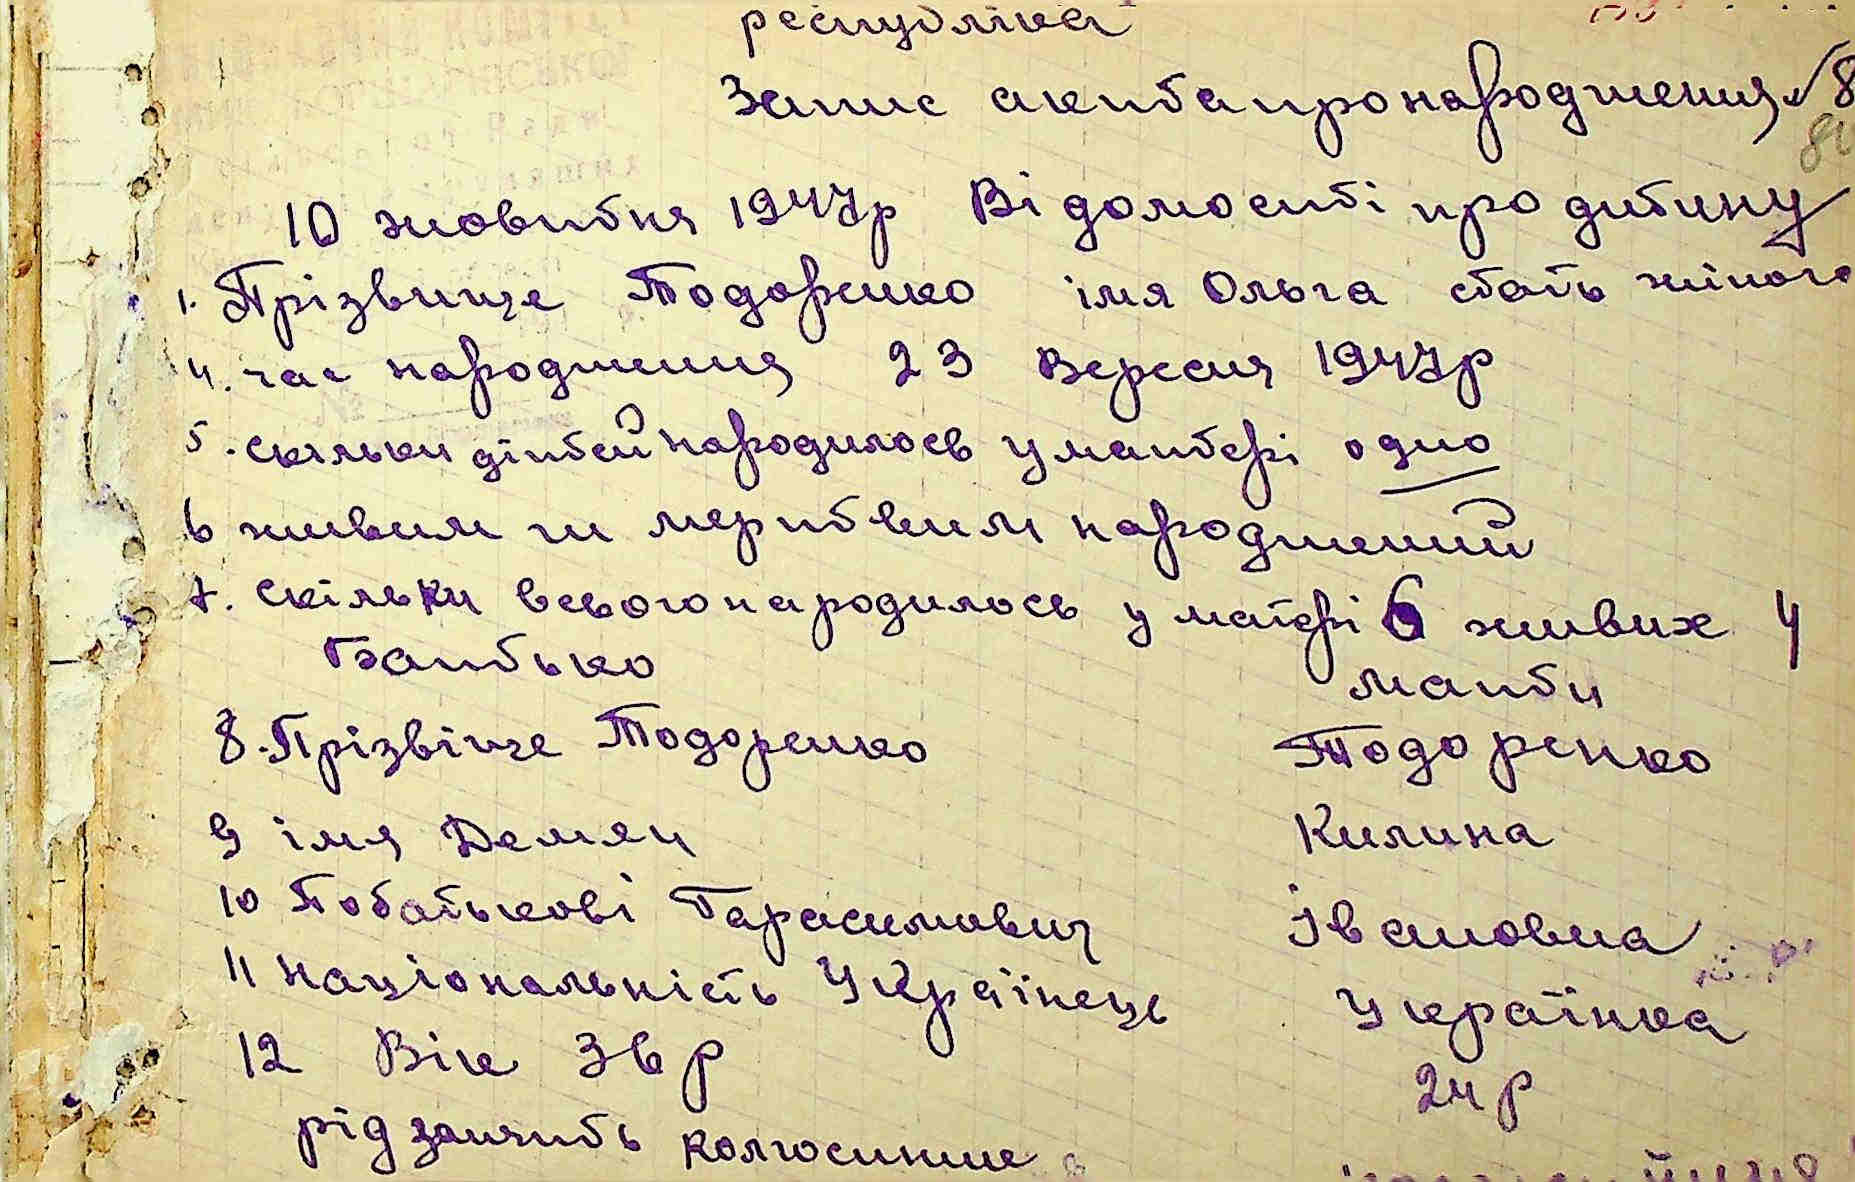 республіка
Запис акта про народження № 8
10 жовтня 1947р Відомості про дитину
1. Прізвище Тодоренко імя Ольга стать жіноча
4. час народження 23 Вересня 1947р
5. скільки дітей народилось у матері одно
6 живим чи мертвим народжений
7. скільки всього народилось у матері 6 живих 4
Батько мати
8. Прізвіще Тодоренко Тодоренко
9 імя Демян Килина
10 Побатькові Тарасимович Івановна
11 Національність Українець Українка
12 Вік 36р 24р
рід занять колгоспник